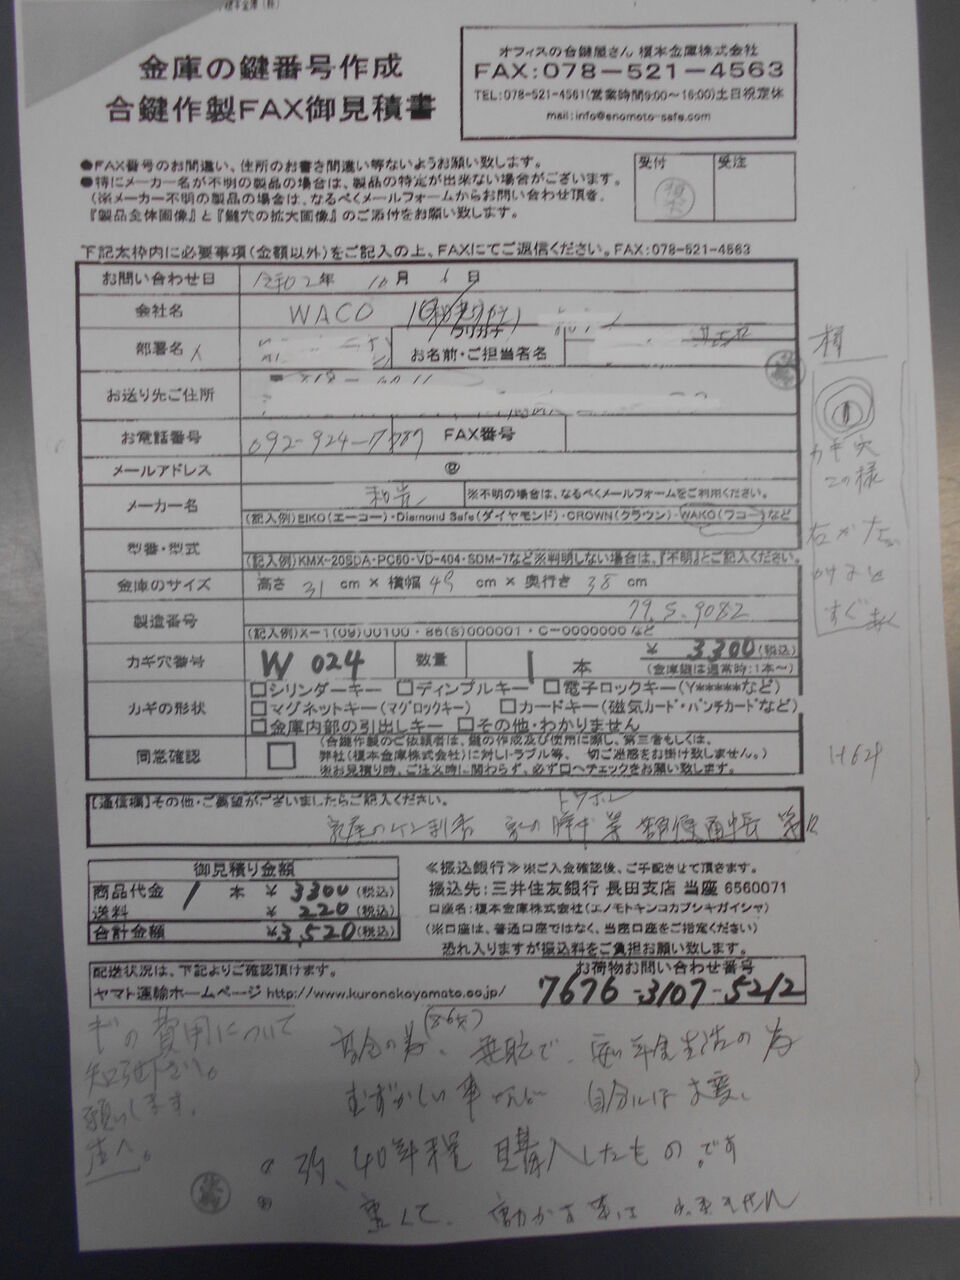 金庫の鍵番号作成
合鍵作製FAX御見積書
オフィスの合鍵屋さん 榎本金庫株式会社
FAX:078-521-4563
TEL:078-521-4561(営業時間9:00~16:00)土日祝定休
mail:info@enomoto-safe.com
●FAX番号のお間違い、住所のお書き間違い等ないようお願い致します。
●特にメーカー名が不明の製品の場合は、製品の特定が出来ない場合がございます。
(※メーカー不明の製品の場合は、なるべくメールフォームからお問い合わせ頂き、
『製品全体画像』と『鍵穴の拡大画像』のご添付をお願い致します。
受付 受注
下記太枠内に必要事項(金額以外)をご記入の上、FAXにてご返信ください。FAX:078-521-4563
お問い合わせ日 令和2年 10月 6日
会社名 WACO
部署名 フリガナ
お名前・ご担当者名
様
お送り先ご住所
お電話番号 092-924-7787 FAX番号
メールアドレス @
メーカー名 和光 ※不明の場合は、なるべくメールフォームをご利用ください。
(記入例)EIKO(エーコー)・Diamond Safe(ダイヤモンド)・CROWN(クラウン)・WAKO(ワコー)など
カギ穴
この様
型番・型式
(記入例)KMX-20SDA・PC60・VD-404・SDM-7など※判明しない場合は、『不明』とご記入ください。
金庫のサイズ 高さ 31 cm × 横幅 49 cm × 奥行き 38 cm
製造番号 79.5.9082
(記入例)X-1(09)00100・86(S)000001・C-0000000など
カギ穴番号 W 024 数量 1 本 ¥ 3300(税込)
(金庫鍵は通常時:1本~)
カギの形状 □シリンダーキー □ディンプルキー □電子ロックキー(Y*****など)
□マグネットキー(マグロックキー) □カードキー(磁気カード・パンチカードなど)
□金庫内部の引出しキー □その他・わかりません
同意確認 □ (合鍵作製のご依頼者は、鍵の作成及び使用に際し、第三者もしくは、
弊社(榎本金庫株式会社)に対しトラブル等、一切ご迷惑をお掛け致しません。)
※お見積り時、ご注文時に関わらず、必ず□へチェックをお願い致します。
H624
【通信欄】その他・ご要望がございましたらご記入ください。
御見積り金額
商品代金 1 本 ¥ 3300(税込)
送料 ¥ 220(税込)
合計金額 ¥3,520(税込)
≪振込銀行≫※ご入金確認後、ご手配させて頂きます。
振込先:三井住友銀行 長田支店 当座 6560071
口座名:榎本金庫株式会社(エノモトキンコカブシキガイシャ)
(※口座は、普通口座ではなく、当座口座をご指定ください)
恐れ入りますが振込料をご負担お願い致します。
配送状況は、下記よりご確認頂けます。 お荷物お問い合わせ番号
ヤマト運輸ホームページ http://www.kuronekoyamato.co.jp/ 7676-3107-5212
の費用について
願いします。
無職で、
むずかしい事
自分には大変、
40年程 購入したものです
重くて、動かす事は 出来ません